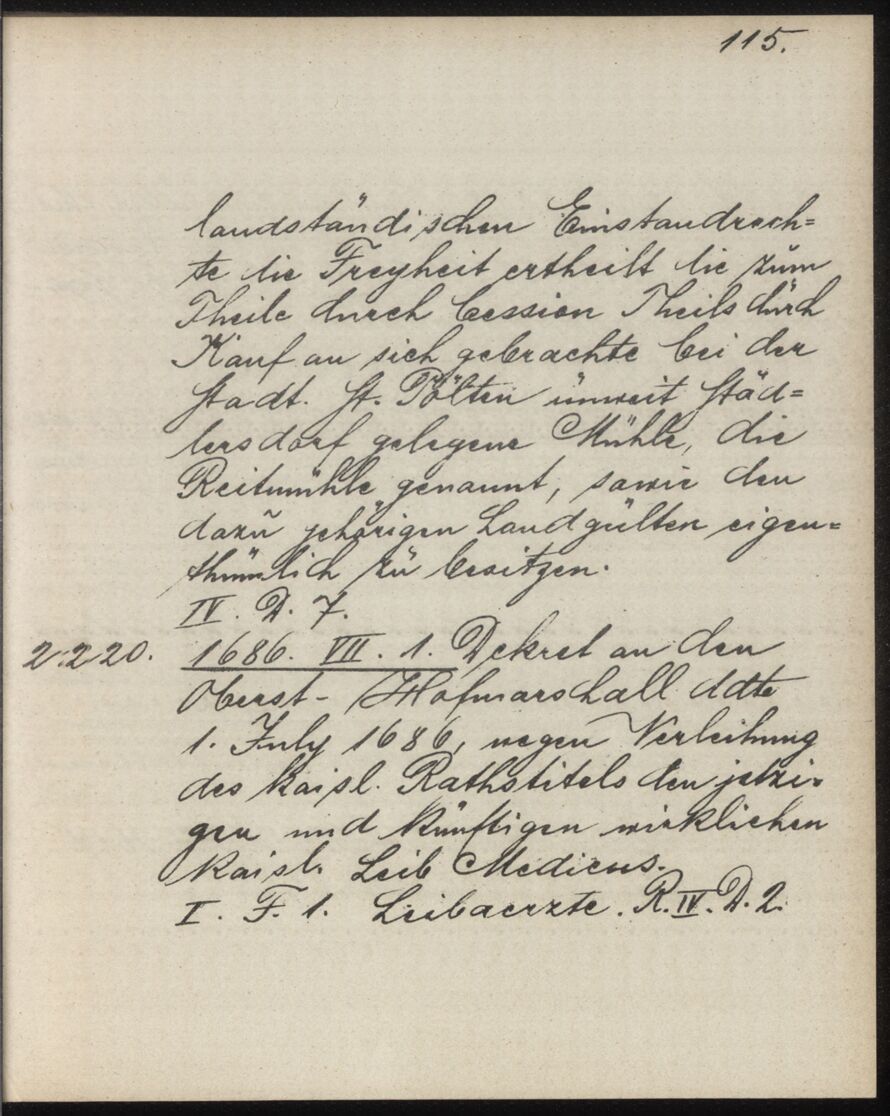 115.
landständischen Einstandrech=
te die Freyheit ertheilt die zum
Theile durch Cession Theils durch
Kauf an sich gebrachte bei der
Stadt. St. Pölten unweit Städ=
lersdorf gelegene Mühle, die
Reitmühle genannt, sowie den
dazu gehörigen Landgülten eigen=
thümlich zu besitzen.
IV. D. 7.
2220. 1686. VII. 1. Dekret an den
Oberst- Hofmarschall ddto
1. July 1686, wegen Verleihung
des kaisl. Rathstitels den jetzi=
gen und künftigen wirklichen
kaisl. Leib Medicus.
I. F. 1. Leibaerzte. R. IV. D. 2.